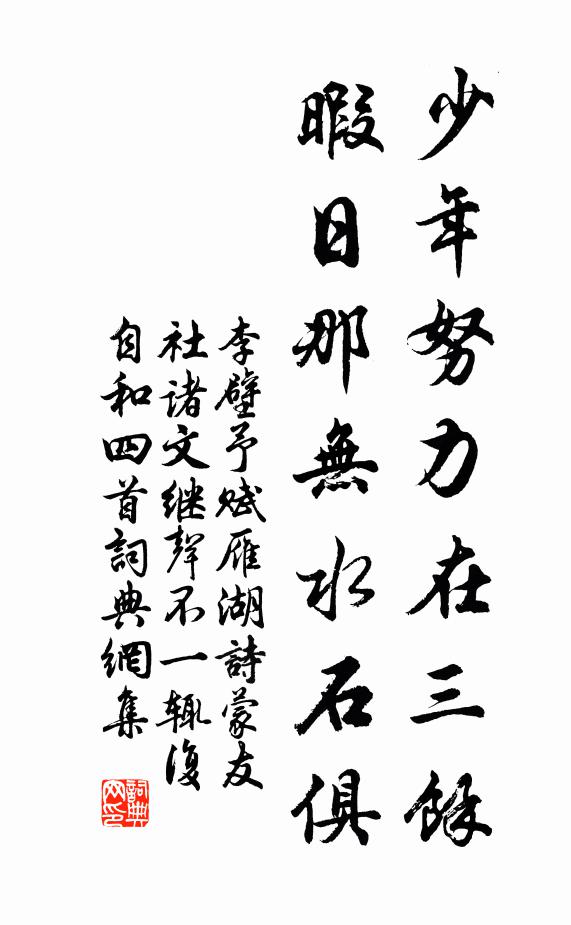 少年努力在三餘
暇日那無水石俱
李壁予賦雁湖詩蒙友
社诸文继聲不一辄復
自和四首詞典網集
詞典网印